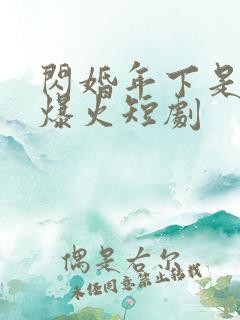 閃婚年下是
爆火短劇
偶是右尔
未经同意禁止转载